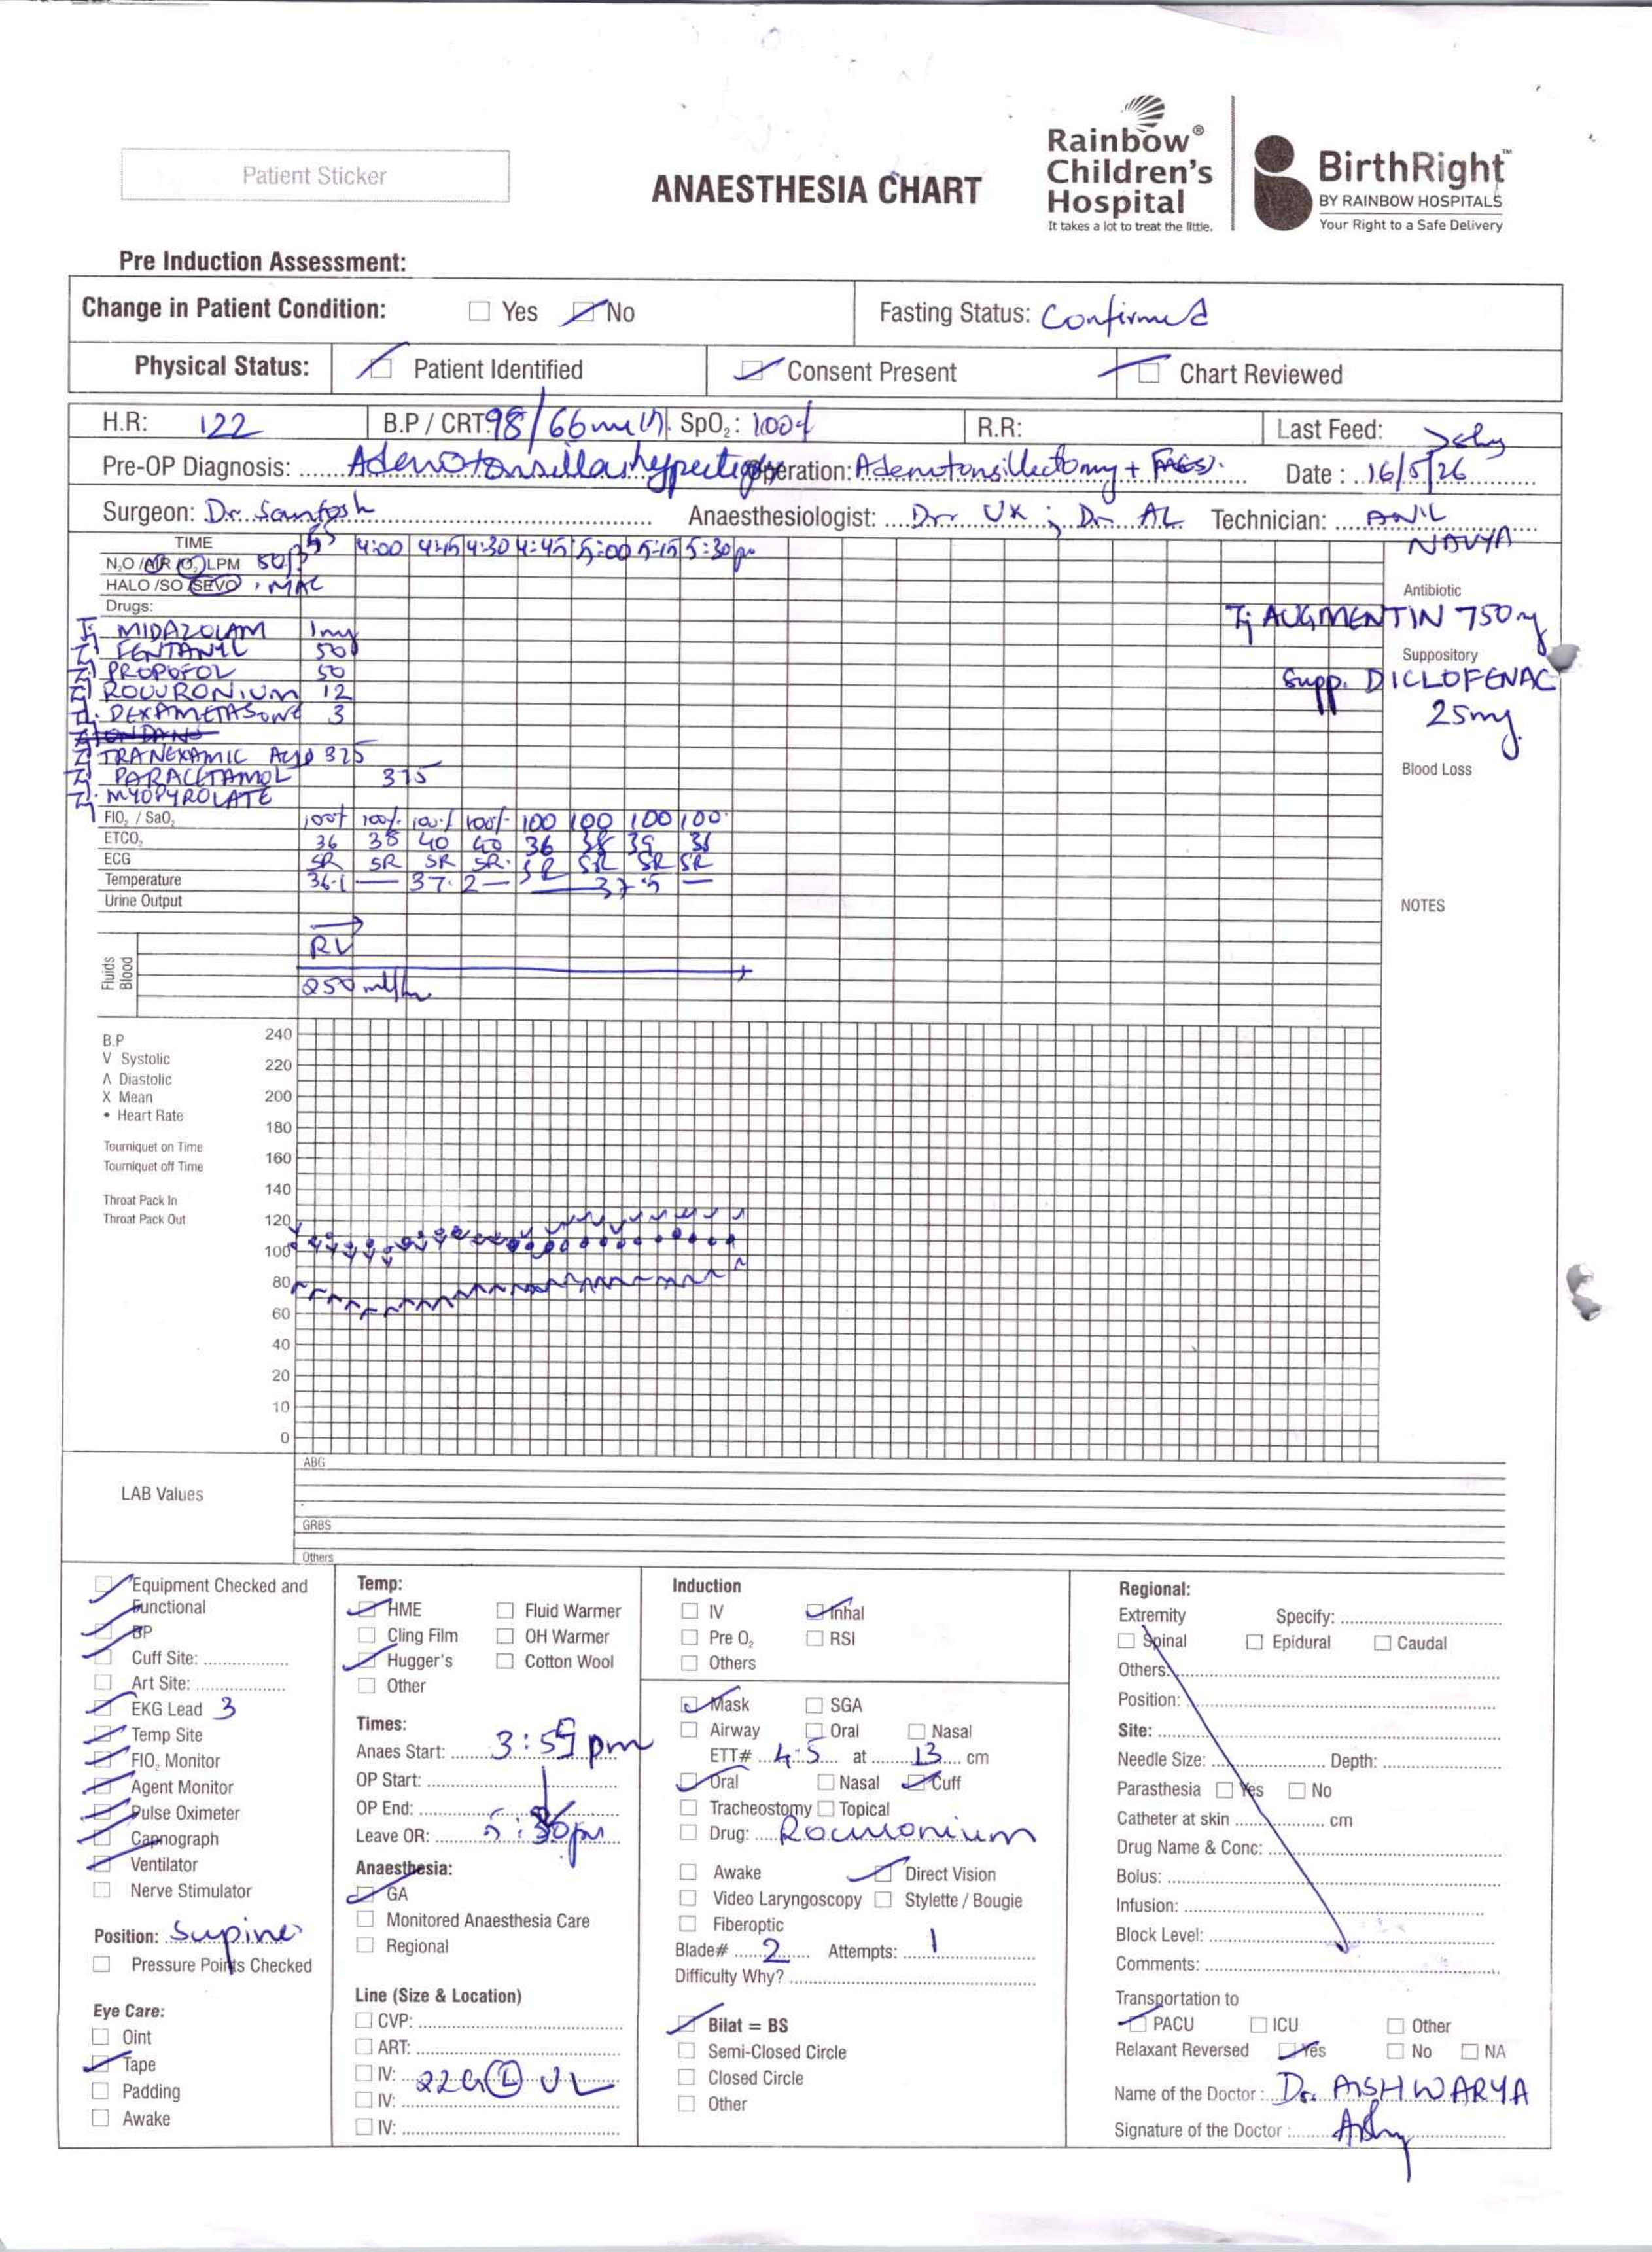 Patient Sticker
ANAESTHESIA CHART
Rainbow®
Children's
Hospital
It takes a lot to treat the little.
BirthRight™
BY RAINBOW HOSPITALS
Your Right to a Safe Delivery
Pre Induction Assessment:
Change in Patient Condition: Yes No Fasting Status: Confirmed
Physical Status: Patient Identified Consent Present Chart Reviewed
H.R: 122 B.P / CRT: 98/66 SpO₂: 100% R.R: Last Feed:
Pre-OP Diagnosis: Operation: Adenotonsillectomy + Date: 16/5/26
Surgeon: Dr. Santosh Anaesthesiologist: Dr. UK ; Dr. AL Technician: ANIL
NAVYA
TIME 4:00 4:15 4:30 4:45 5:00 5:15 5:30pm
N₂O /AIR /O₂ LPM
HALO /SO /SEVO MAC
Antibiotic
Drugs:
AUGMENTIN 750
MIDAZOLAM 1mg
FENTANYL 50
Suppository
PROPOFOL 50
Supp. DICLOFENAC
ROCURONIUM 12
25mg
DEXAMETASONE 3
TRANEXAMIC 325
Blood Loss
PARACETAMOL
MYOPYROLATE
FIO₂ / SaO₂ 100% 100% 100% 100% 100 100 100 100
ETCO₂ 36 38 40 40 36 38
ECG SR SR SR SR SR SR SR SR
Temperature 36.1 37.2 37.5
Urine Output
NOTES
Fluids
Blood
250 ml/hr
B.P
V Systolic
Λ Diastolic
X Mean
• Heart Rate
Tourniquet on Time
Tourniquet off Time
Throat Pack In
Throat Pack Out
240
220
200
180
160
140
120
100
80
60
40
20
10
0
LAB Values
ABG
GRBS
Others
Equipment Checked and
Functional
BP
Cuff Site:
Art Site:
EKG Lead 3
Temp Site
FIO₂ Monitor
Agent Monitor
Pulse Oximeter
Capnograph
Ventilator
Nerve Stimulator
Position: Supine
Pressure Points Checked
Eye Care:
Oint
Tape
Padding
Awake
Temp:
HME Fluid Warmer
Cling Film OH Warmer
Hugger's Cotton Wool
Other
Times:
Anaes Start: pm
OP Start:
OP End:
Leave OR: 5:30pm
Anaesthesia:
GA
Monitored Anaesthesia Care
Regional
Line (Size & Location)
CVP:
ART:
IV: 22G Ⓛ UL
IV:
IV:
Induction
IV Inhal
Pre O₂ RSI
Others
Mask SGA
Airway Oral Nasal
ETT# 4.5 at 13 cm
Oral Nasal Cuff
Tracheostomy Topical
Drug: Rocuronium
Awake Direct Vision
Video Laryngoscopy Stylette / Bougie
Fiberoptic
Blade# 2 Attempts: 1
Difficulty Why?
Bilat = BS
Semi-Closed Circle
Closed Circle
Other
Regional:
Extremity Specify:
Spinal Epidural Caudal
Others:
Position:
Site:
Needle Size: Depth:
Parasthesia Yes No
Catheter at skin cm
Drug Name & Conc:
Bolus:
Infusion:
Block Level:
Comments:
Transportation to
PACU ICU Other
Relaxant Reversed Yes No NA
Name of the Doctor: Dr. AISHWARYA
Signature of the Doctor: